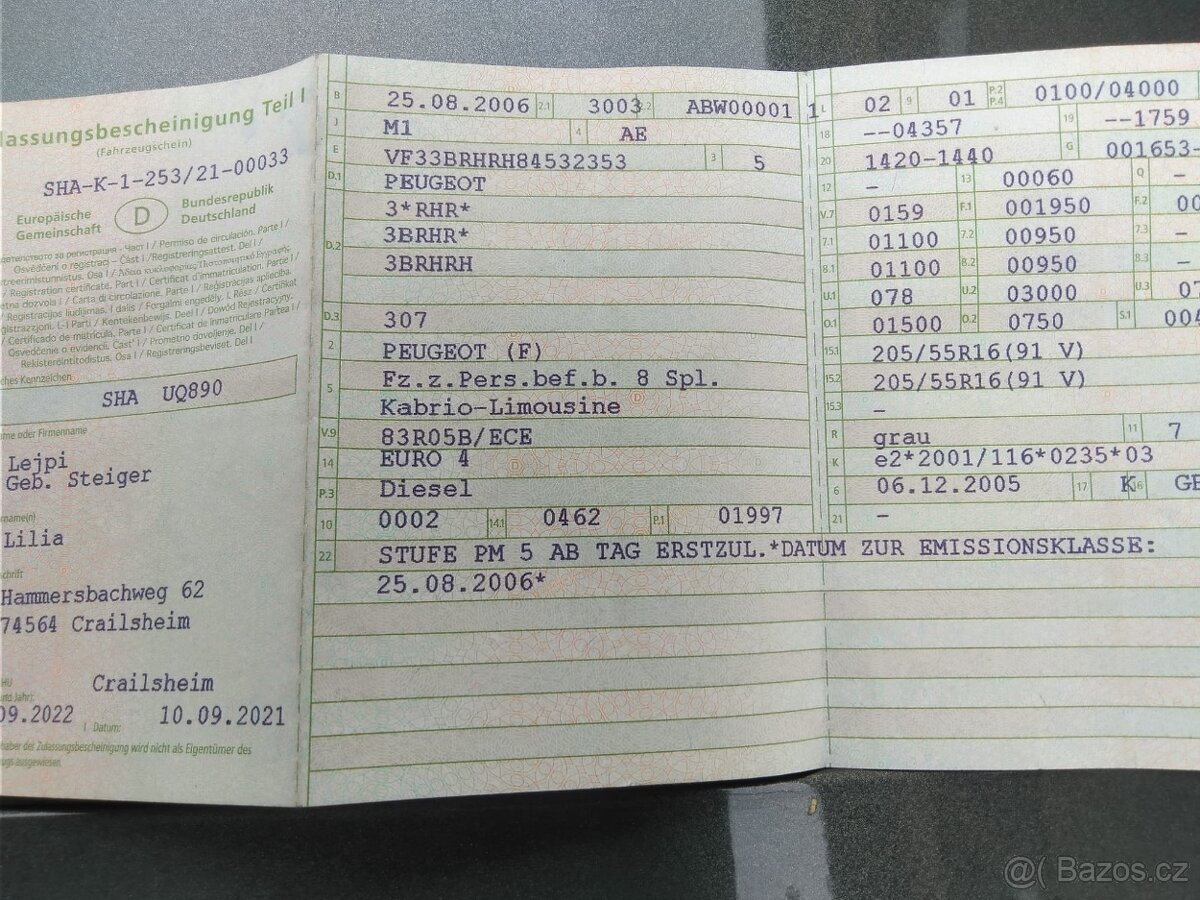 lassungsbescheinigung Teil I
(Fahrzeugschein)
SHA-K-1-253/21-00033
Europäische
Gemeinschaft
D
Bundesrepublik
Deutschland
Osvědčení o registraci – Část I / Registreringsattest. Del I /
/ Registration certificate. Part I / Certificat d'immatriculation. Partie I /
etna dozvola I / Carta di circolazione. Parte I / Reģistrācijas apliecība.
/ Registracijos liudijimas. I dalis / Forgalmi engedély. I. Rész / Ċertifikat
gistrazzjoni. L-I Parti / Kentekenbewijs. Deel I / Dowód Rejestracyjny.
/ Certificado de matrícula. Parte I / Certificat de inmatriculare Partea I /
Osvedčenie o evidencii. Časť I / Prometno dovoljenje. Del I /
Rekisteröintitodistus. Osa I / Registreringsbeviset. Del I
ches Kennzeichen
SHA UQ890
ame oder Firmenname
Lejpi
Geb. Steiger
rname(n)
Lilia
schrift
Hammersbachweg 62
74564 Crailsheim
HU
Crailsheim
09.2022
I. Datum:
10.09.2021
haber der Zulassungsbescheinigung wird nicht als Eigentümer des
ugs ausgewiesen.
B 25.08.2006 2.1 3003 2.2 ABW00001 1
J M1 4 AE
E VF33BRHRH84532353 3 5
D.1 PEUGEOT
3*RHR*
D.2 3BRHR*
3BRHRH
D.3 307
2 PEUGEOT (F)
5 Fz.z.Pers.bef.b. 8 Spl.
Kabrio-Limousine
V.9 83R05B/ECE
14 EURO 4
P.3 Diesel
10 0002 14.1 0462 P.1 01997
22 STUFE PM 5 AB TAG ERSTZUL.*DATUM ZUR EMISSIONSKLASSE:
25.08.2006*
L 02 9 01 P.2 P.4 0100/04000
18 --04357 19 --1759
20 1420-1440 G 001653-
12 – 13 00060 Q –
V.7 0159 F.1 001950 F.2 00
7.1 01100 7.2 00950 7.3 –
8.1 01100 8.2 00950 8.3 –
U.1 078 U.2 03000 U.3 07
O.1 01500 O.2 0750 S.1 004
15.1 205/55R16(91 V)
15.2 205/55R16(91 V)
15.3 –
R grau 11 7
K e2*2001/116*0235*03
6 06.12.2005 17 K 16 GE
21 –
@( Bazos.cz